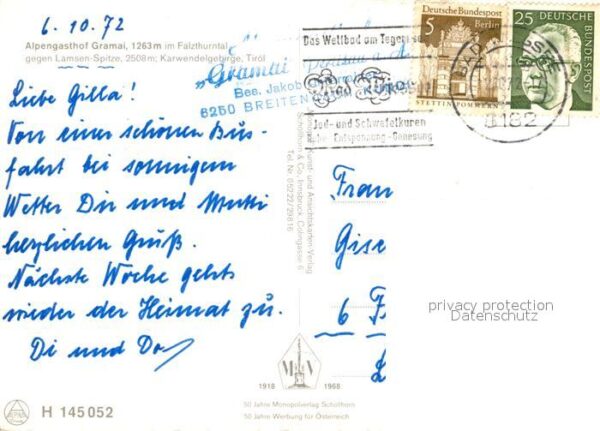 6.10.72
Alpengasthof Gramai, 1263 m im Falzthurntal
gegen Lamsen-Spitze, 2508 m; Karwendelgebirge, Tirol
Liebe Gilla!
Von einer schönen Bus-
fahrt bei sonnigem
Wetter Dir und Mutti
herzlichen Gruß.
Nächste Woche gehts
wieder der Heimat zu.
Di und
H 145052
"Gramai
Bes. Jakob
6250 BREITEN
Das Weltbad am Tegernsee
Bad
Jod- und Schwefelkuren
Entspannung - Genesung
5
Deutsche Bundespost
Berlin
STETTIN/POMMERN
25
DEUTSCHE BUNDESPOST
8182
Kunst- und Ansichtskarten-Verlag
Schöllhorn & Co., Innsbruck, Colingasse 6
Tel. Nr. 05222/29816
Frau
Gise
6 F
privacy protection
Datenschutz
1918
1968
50 Jahre Monopolverlag Schöllhorn
50 Jahre Werbung für Österreich